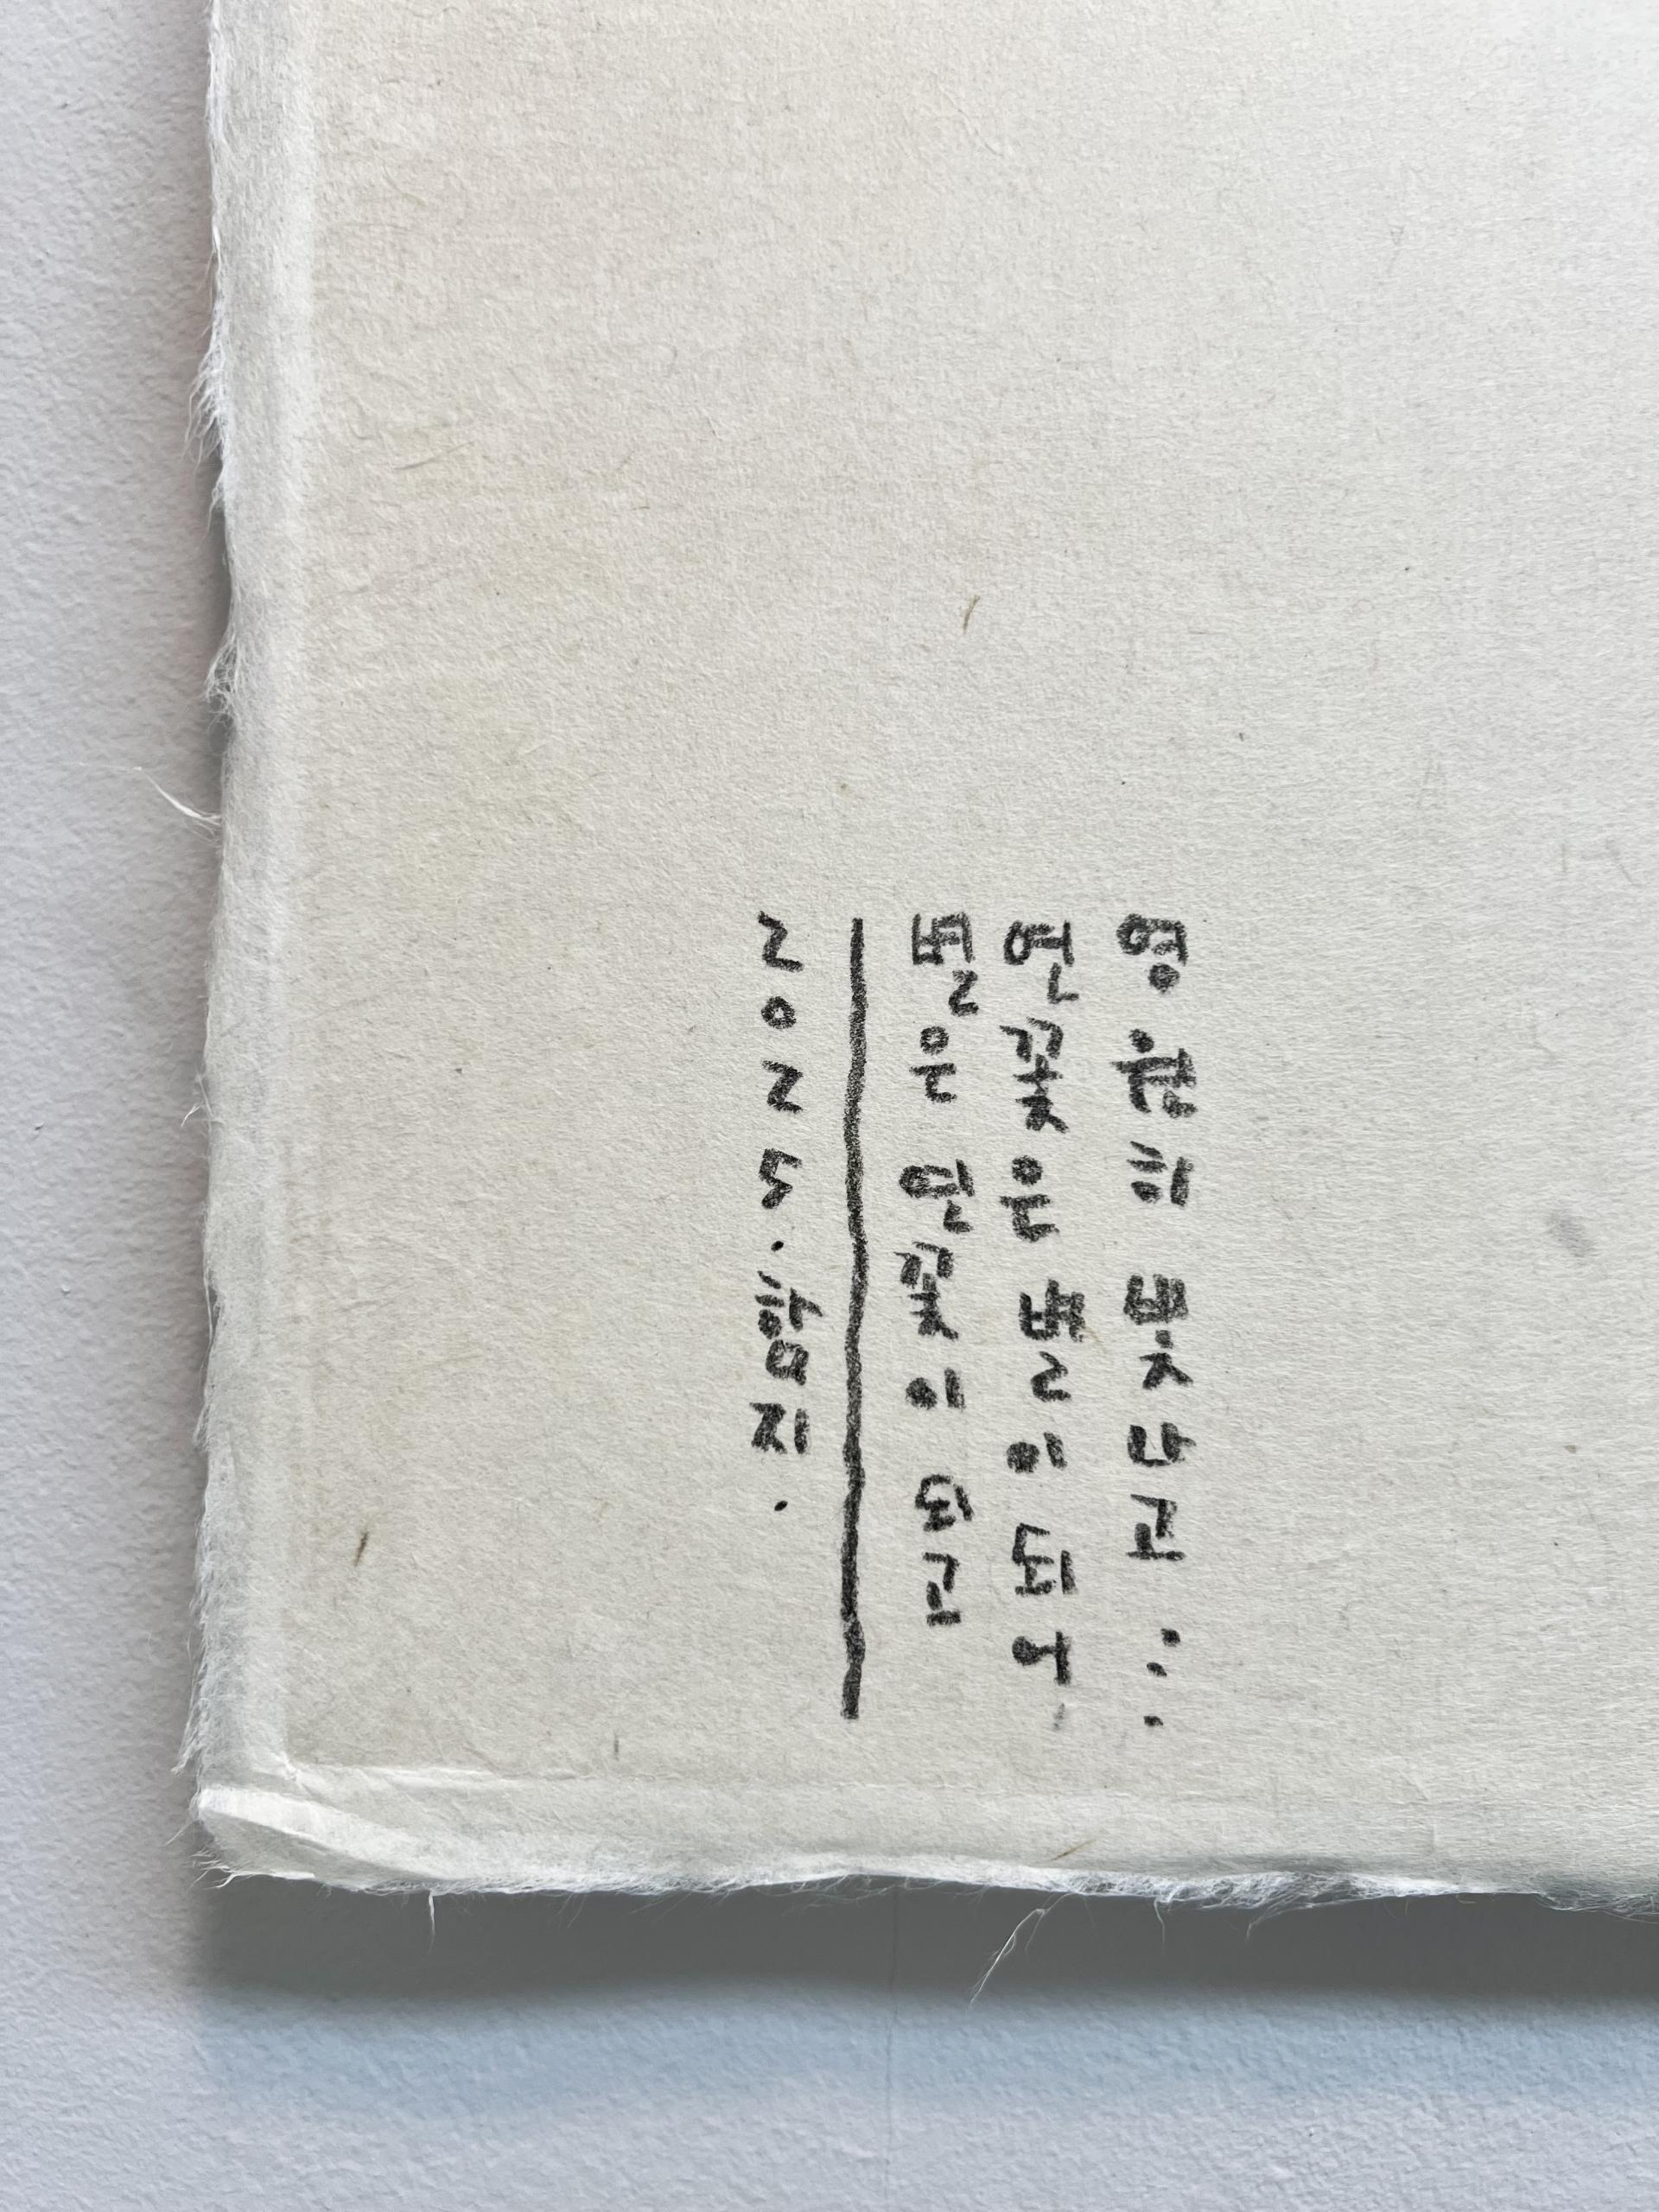 영원히 빛나고...
연꽃은 별이 되어
별은 연꽃이 되고
2025. 함지.